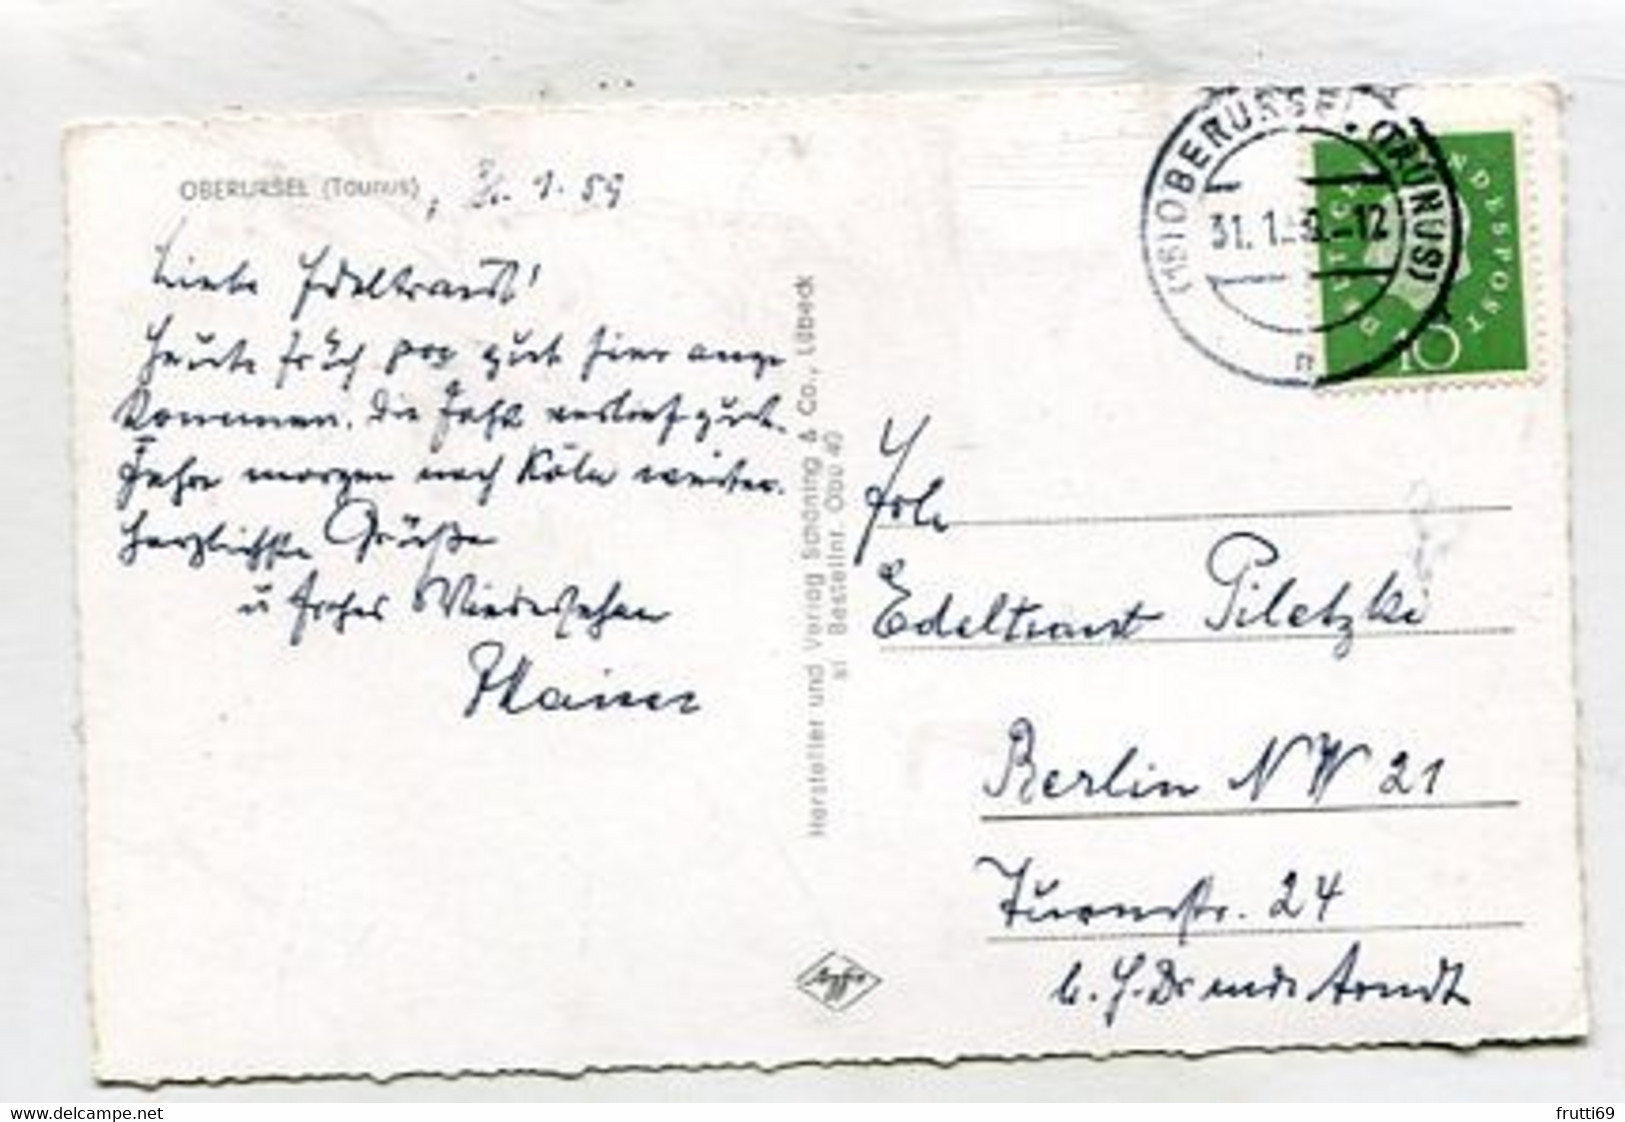 OBERURSEL (Taunus), 31. 1. 59
Liebe Edeltraut!
Heute früh gut hier ange
kommen. Die Fahrt verlief gut.
Fahre morgen nach Köln weiter.
Herzlichste Grüße
u frohes Wiedersehen
Hersteller und Verlag Schöning & Co., Lübeck
Bestellnr. Obu 40
Agfa
(16) OBERURSEL (TAUNUS)
31. 1. -12
n
DEUTSCHE BUNDESPOST
10
Frl.
Edeltraut Piletzki
Berlin NW 21
Turmstr. 24
b. Arndt
delcampe.net
frutti69